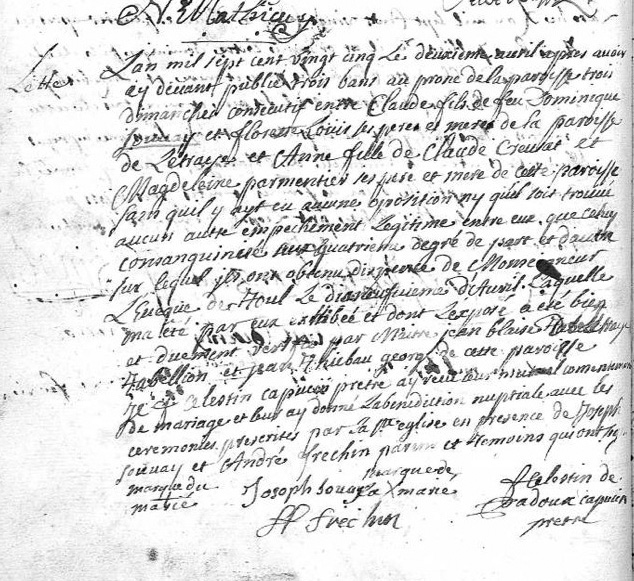 N. Mathieu
Lan mil sept cent vingt cinq Le deuxieme avril apres avoir
cy devant publié trois bans au prone de la paroisse trois
dimanches consecutif entre Claude fils de feu Dominique
Souvay et florence Louis ses peres et meres de la paroisse
de Letraye et Anne fille de Claude Creusat et
Magdeleine parmentier ses pere et mere de cette paroisse
sans quil y ayt eu aucune oposition ny quil soit trouvé
aucun autre empechement Legitime entre eux que celuy
consanguineté au quatrieme degré de part et dautre
sur lequel ils ont obtenu dispence de Monseigneur
LEveque de Thoul Le dixneuvieme dAvril Laquelle
ma été par eux exhibée et dont Lexposé a été bien
et duement verifié par Maitre jean blaise
Tabellion et jean Thiebau george de cette paroisse
Je Celestin capucin pretre ay receu leur mutuel consentement
de mariage et leur ay donné La benediction nuptiale avec les
ceremonies prescrites par la Ste eglise en presence de Joseph
Souvay et André frechin parain et temoins qui ont sig
marque du Joseph Souvay marque de f Celestin de
marié la X mariée Padoux capucin
ff frechin pretre